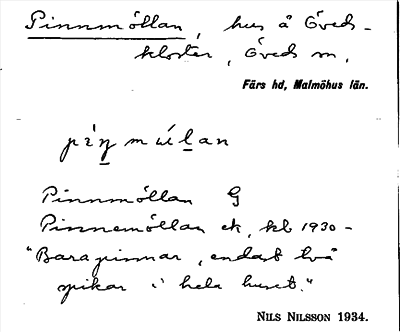 Pinnmöllan, hus å Öveds-
kloster, Öveds sn,
Färs hd, Malmöhus län.
Pinnmöllan G
Pinnemöllan ek. kb 1930-
"Bara pinnar, endast två
spikar i hela huset."
NILS NILSSON 1934.